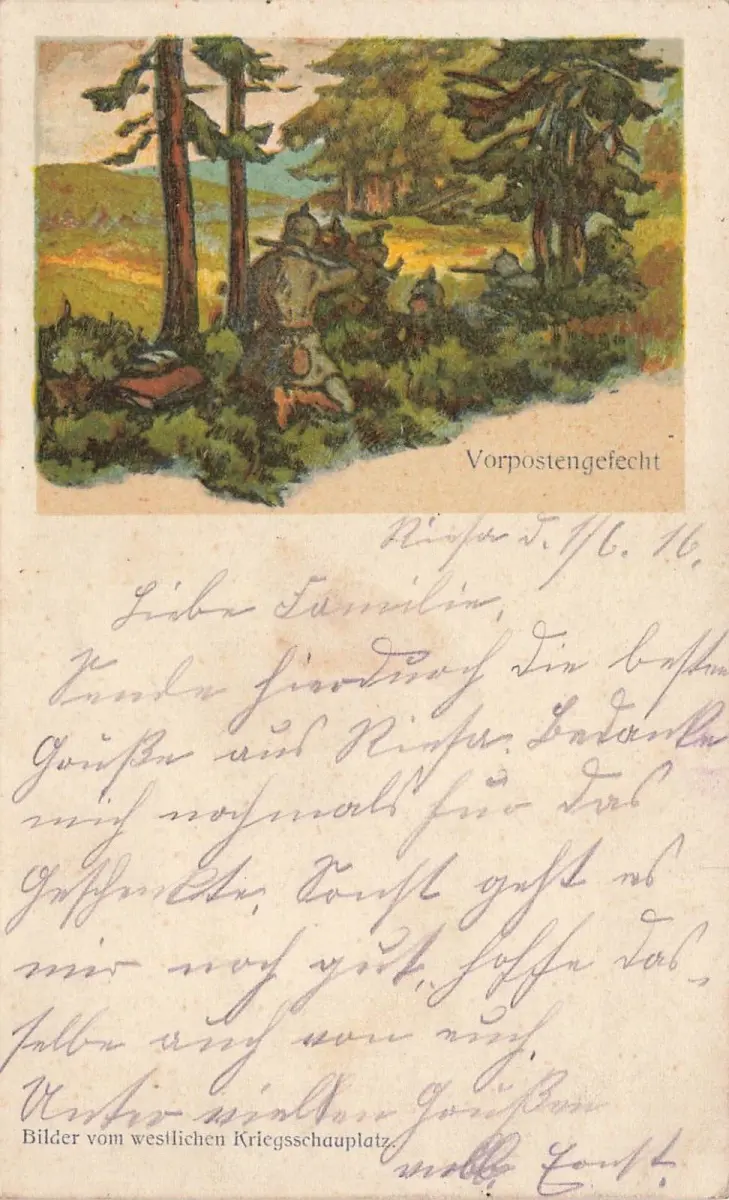 Vorpostengefecht
Riesa d. 1/6. 16.
Liebe Familie,
Sende hierdurch die besten
Grüße aus Riesa. Bedanke
mich nochmals für das
Geschenkte. Sonst geht es
mir noch gut, hoffe das-
selbe auch von euch.
Unter vielen Grüßen
Bilder vom westlichen Kriegsschauplatz.
Ernst.